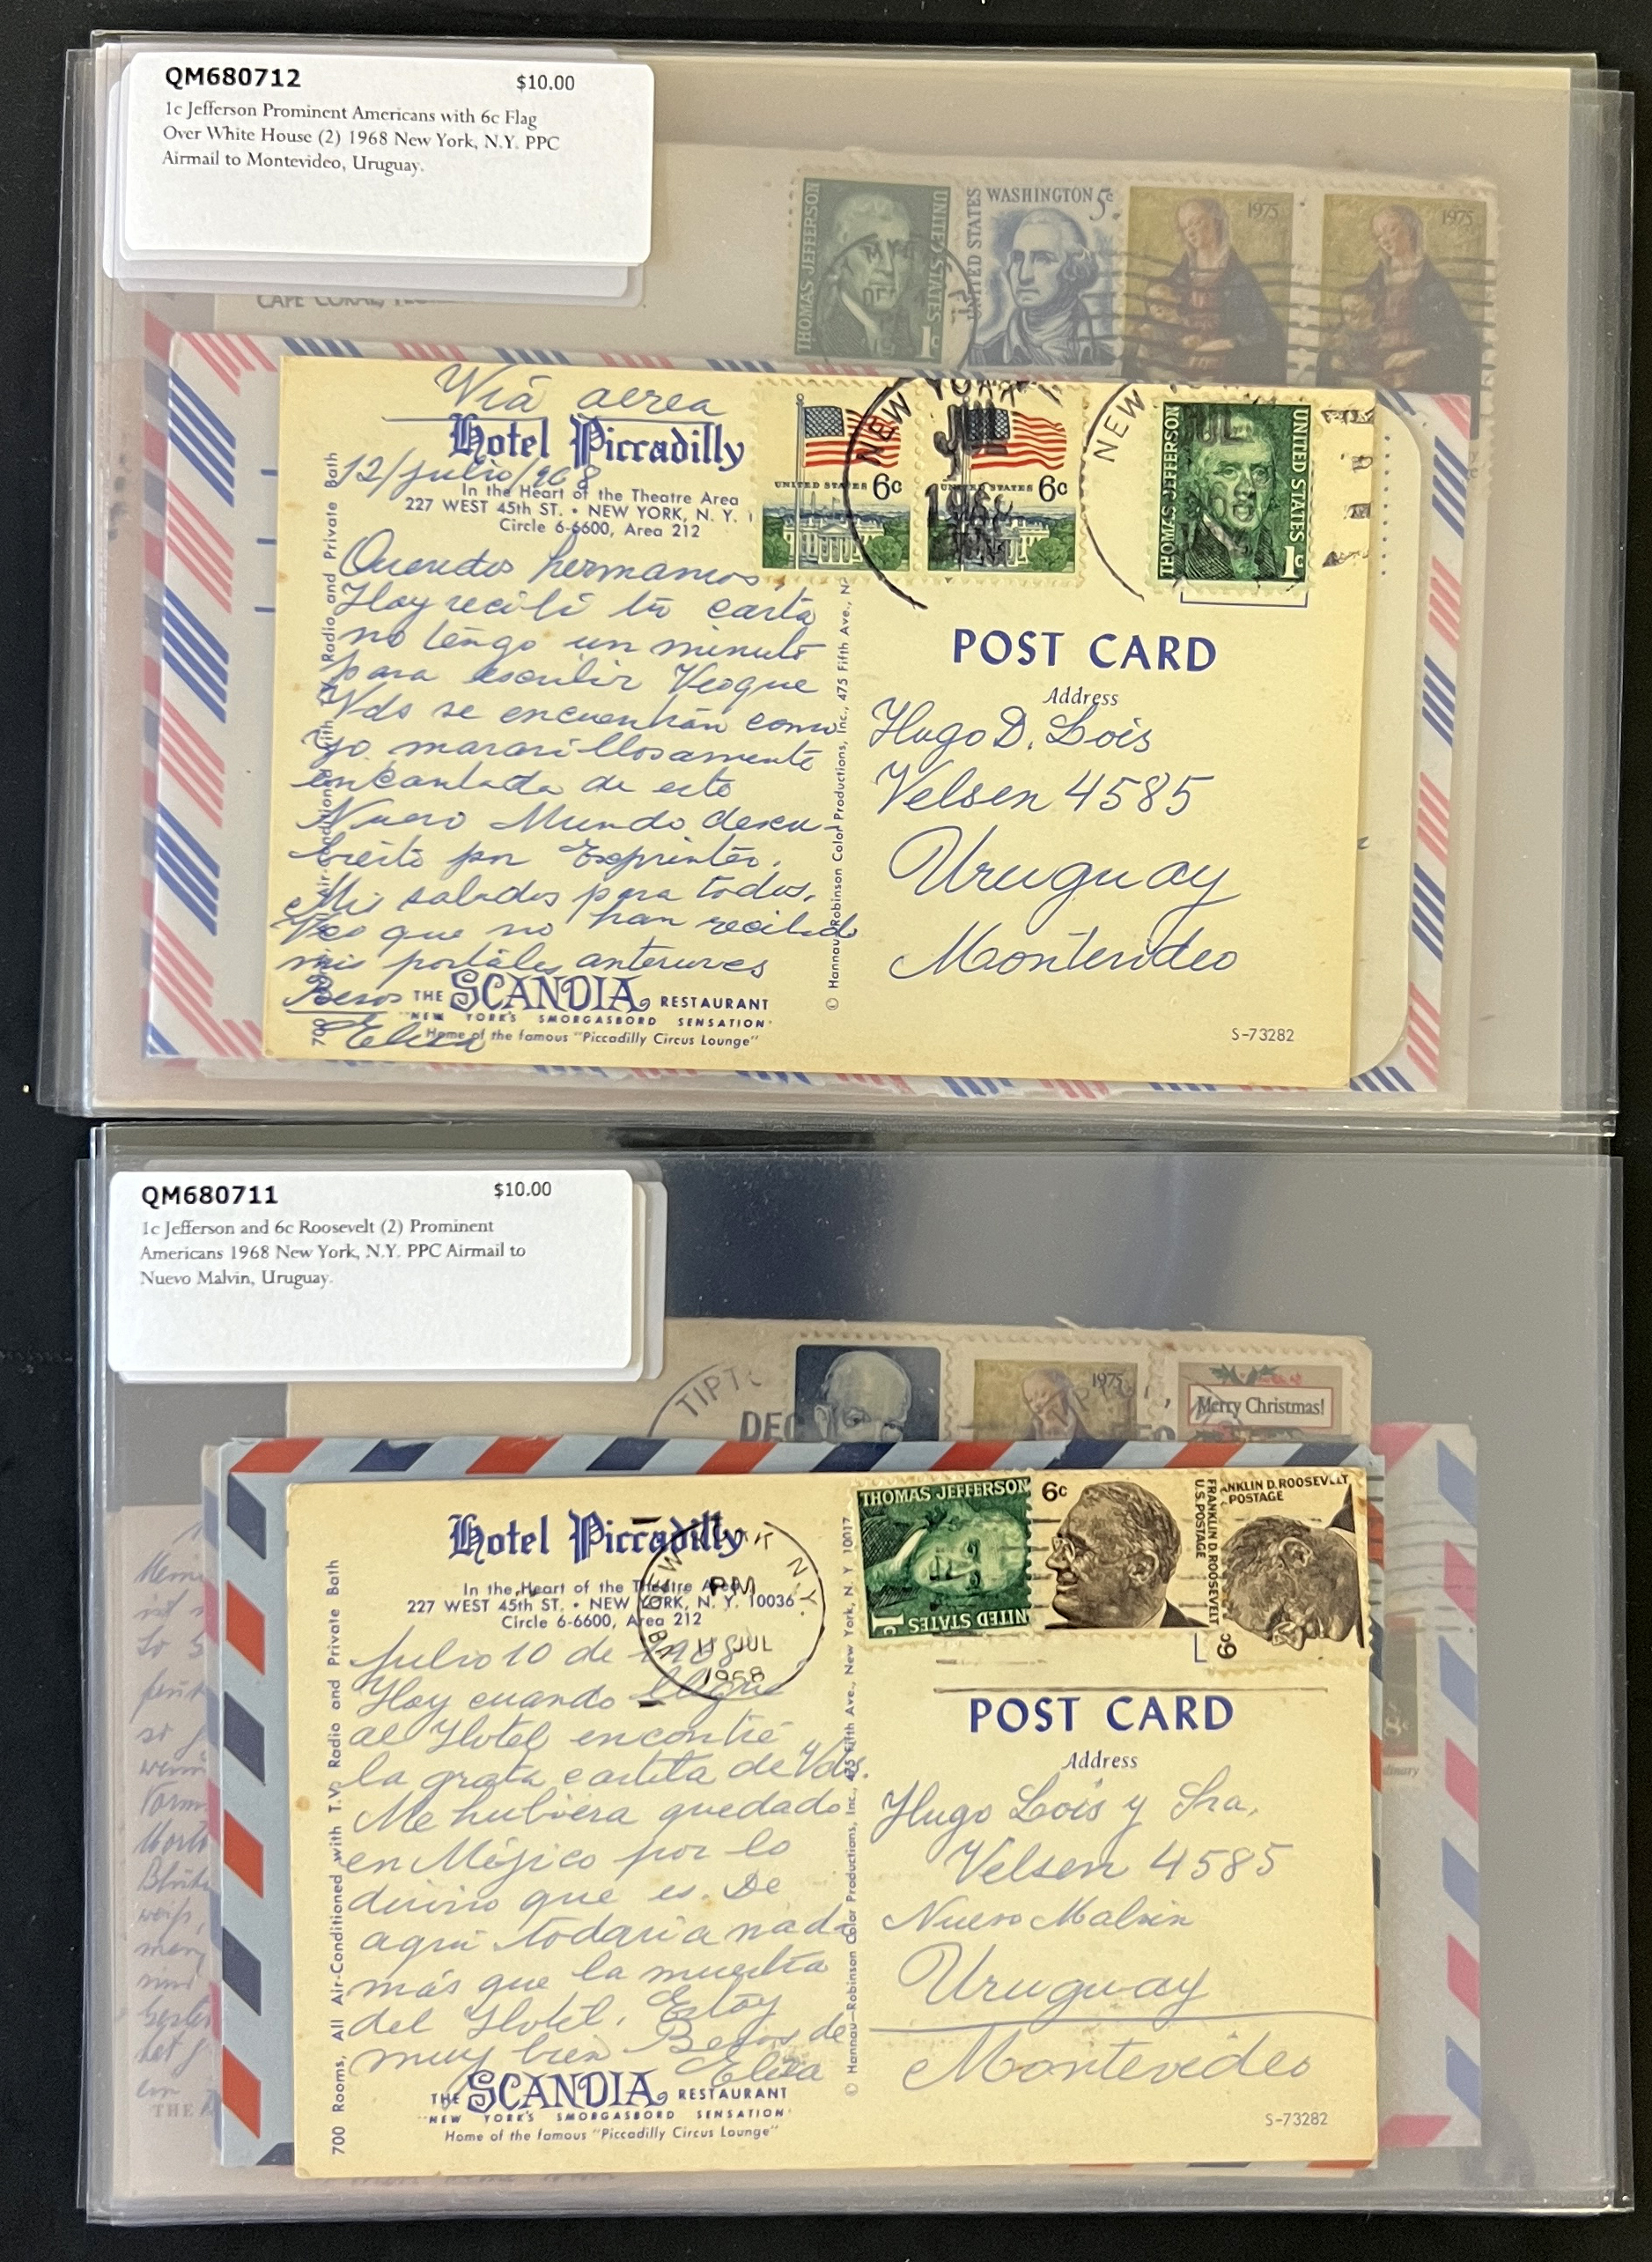 QM680712 $10.00
1c Jefferson Prominent Americans with 6c Flag
Over White House (2) 1968 New York, N.Y. PPC
Airmail to Montevideo, Uruguay.
CAPE CORAL,
THOMAS JEFFERSON
UNITED STATES
1c
UNITED STATES
WASHINGTON 5c
1975
1975
Vía aerea
Hotel Piccadilly
12/julio/968
In the Heart of the Theatre Area
227 WEST 45th ST. • NEW YORK, N. Y. 1
Circle 6-6600, Area 212
Queridos hermanos,
Hoy recibí tu carta
no tengo un minuto
para escribir Veo que
Vds se encuentran como
yo maravillosamente
encantada de este
Nuevo Mundo descu-
bierto por Exprinter.
Mis saludos para todos.
Veo que no han recibido
mis postales anteriores
Besos
Eliza
THE SCANDIA RESTAURANT
"NEW YORK'S SMORGASBORD SENSATION"
Home of the famous "Piccadilly Circus Lounge"
Radio and Private Bath
700
© Hannau-Robinson Color Productions, Inc., 475 Fifth Ave., N
UNITED STATES 6c
UNITED STATES 6c
NEW YORK
JUL
1968
NEW
JUL
THOMAS JEFFERSON
UNITED STATES
1c
POST CARD
Address
Hugo D. Lois
Velsen 4585
Uruguay
Montevideo
S-73282
QM680711 $10.00
1c Jefferson and 6c Roosevelt (2) Prominent
Americans 1968 New York, N.Y. PPC Airmail to
Nuevo Malvin, Uruguay.
TIPT
DEC
1975
Merry Christmas!
Hotel Piccadilly
In the Heart of the Theatre Area
227 WEST 45th ST. • NEW YORK, N. Y. 10036
Circle 6-6600, Area 212
NEW YORK N.Y.
PM
11 JUL
1968
Julio 10 de 1968
Hoy cuando llegué
al Hotel encontré
la grata cartita de Vds.
Me hubiera quedado
en Méjico por lo
divino que es. De
aquí todavía nada
más que la muestra
del Hotel. Estoy
muy bien Besos de
Eliza
THE SCANDIA RESTAURANT
"NEW YORK'S SMORGASBORD SENSATION"
Home of the famous "Piccadilly Circus Lounge"
700 Rooms, All Air-Conditioned with T.V. Radio and Private Bath
© Hannau-Robinson Color Productions, Inc., 475 Fifth Ave., New York, N. Y. 10017
THOMAS JEFFERSON
UNITED STATES
1c
6c
FRANKLIN D. ROOSEVELT
U.S. POSTAGE
ANKLIN D. ROOSEVELT
POSTAGE
6c
POST CARD
Address
Hugo Lois y Sra.
Velsen 4585
Nuevo Malvin
Uruguay
Montevideo
S-73282
THE